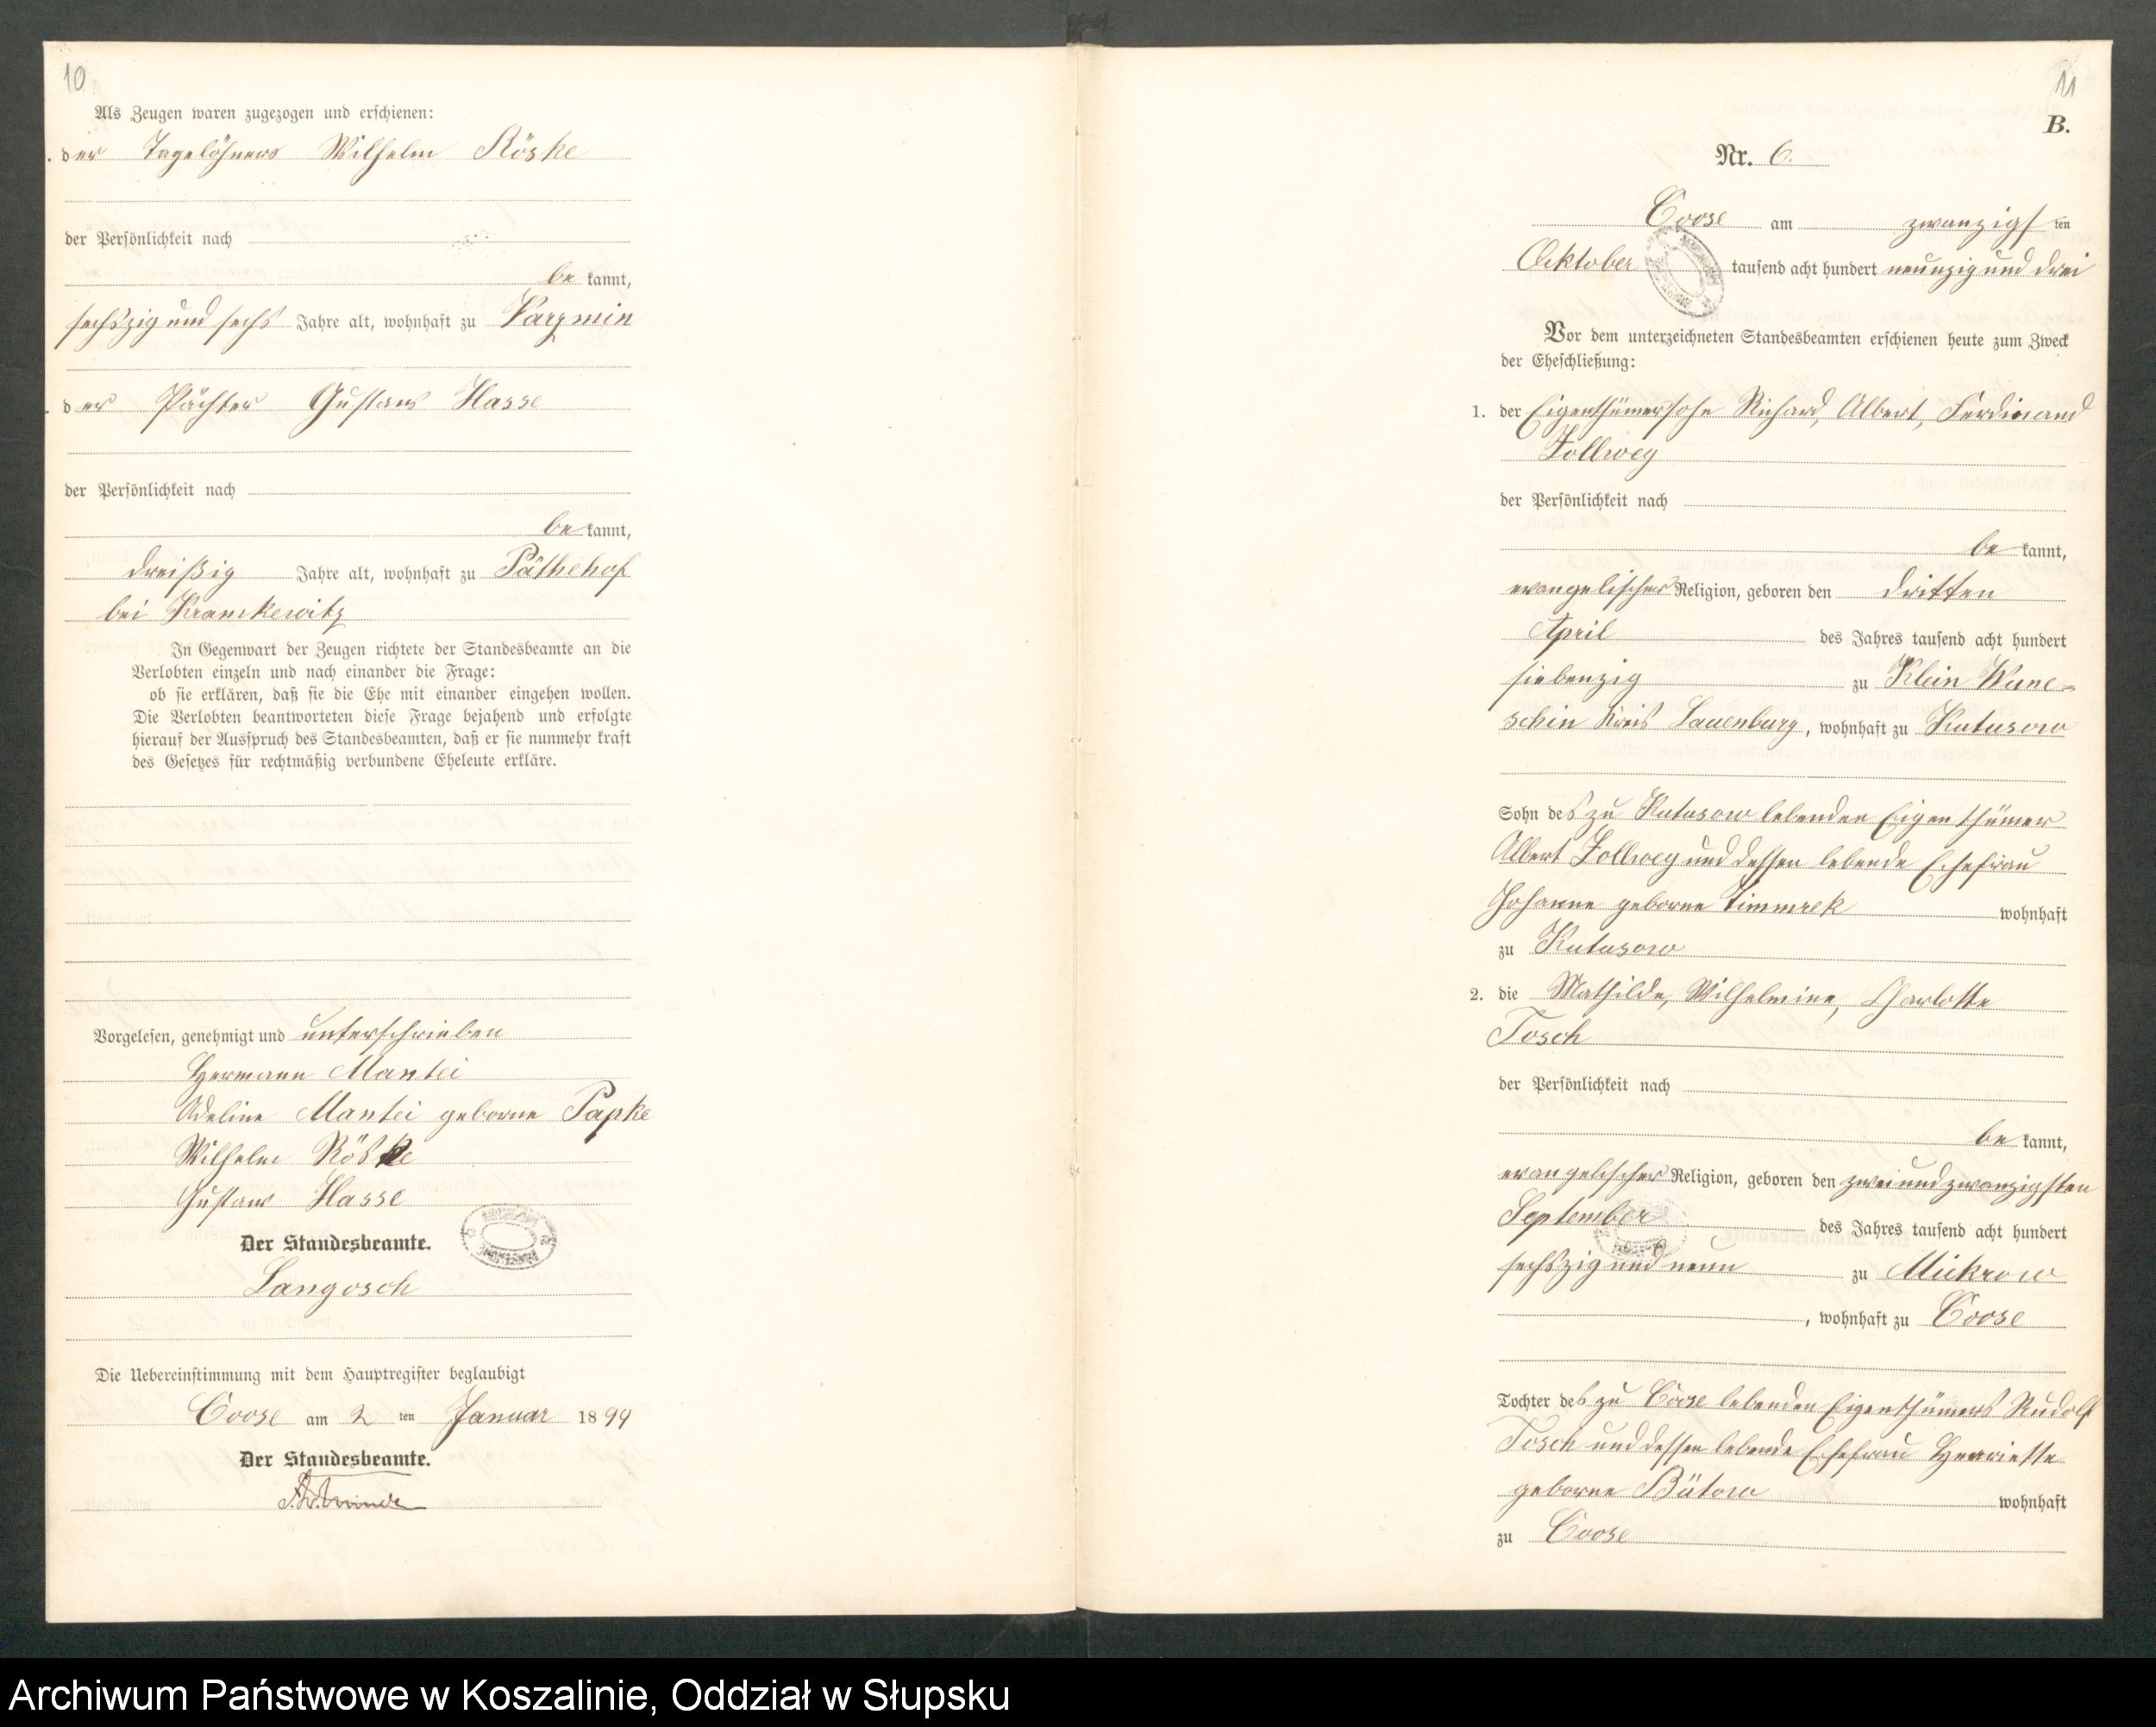 10
Als Zeugen waren zugezogen und erschienen:
der Tagelöhner Wilhelm Röske
der Persönlichkeit nach
be kannt,
sechszig und sechs Jahre alt, wohnhaft zu Varzmin
der Pächter Gustav Hasse
der Persönlichkeit nach
be kannt,
dreißig Jahre alt, wohnhaft zu Päthehof
bei Kramkewitz
In Gegenwart der Zeugen richtete der Standesbeamte an die
Verlobten einzeln und nach einander die Frage:
ob sie erklären, daß sie die Ehe mit einander eingehen wollen.
Die Verlobten beantworteten diese Frage bejahend und erfolgte
hierauf der Ausspruch des Standesbeamten, daß er sie nunmehr kraft
des Gesetzes für rechtmäßig verbundene Eheleute erkläre.
Vorgelesen, genehmigt und unterschrieben
Hermann Mantei
Adeline Mantei geborne Papke
Wilhelm Röske
Gustav Hasse
Der Standesbeamte.
Langosch
Die Uebereinstimmung mit dem Hauptregister beglaubigt
Coose am 2 ten Januar 1894
Der Standesbeamte.
11
B.
Nr. 6.
Coose am zwanzigsten
Oktober tausend acht hundert neunzig und drei
Vor dem unterzeichneten Standesbeamten erschienen heute zum Zweck
der Eheschließung:
1. der Eigenthümersohn Richard, Albert, Ferdinand
Follweg
der Persönlichkeit nach
be kannt,
evangelischer Religion, geboren den dritten
April des Jahres tausend acht hundert
siebenzig zu Klein Wune-
schin Kreis Lauenburg, wohnhaft zu Kutusow
Sohn des zu Kutusow lebenden Eigenthümer
Albert Follweg und dessen lebende Ehefrau
Johanne geborne Timmrek wohnhaft
zu Kutusow
2. die Mathilde, Wilhelmine, Charlotte
Tosch
der Persönlichkeit nach
be kannt,
evangelischer Religion, geboren den zwei und zwanzigsten
September des Jahres tausend acht hundert
sechszig und neun zu Mickrow
, wohnhaft zu Coose
Tochter des zu Coose lebenden Eigenthümers Rudolf
Tosch und dessen lebende Ehefrau Henriette
geborne Bütow wohnhaft
zu Coose
Archiwum Państwowe w Koszalinie, Oddział w Słupsku